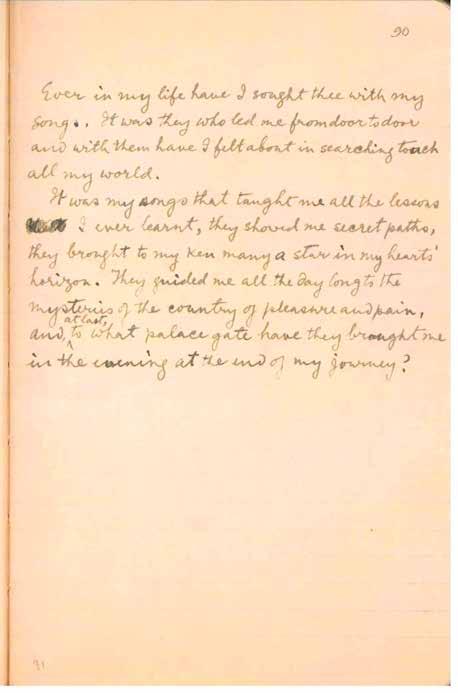 90
Ever in my life have I sought thee with my
songs. It was they who led me from door to door
and with them have I felt about in searching touch
all my world.
It was my songs that taught me all the lessons
I ever learnt, they showed me secret paths,
they brought to my ken many a star in my hearts'
horizon. They guided me all the day long to the
mysteries of the country of pleasure and pain,
and, at last, to what palace gate have they brought me
in the evening at the end of my journey?
91